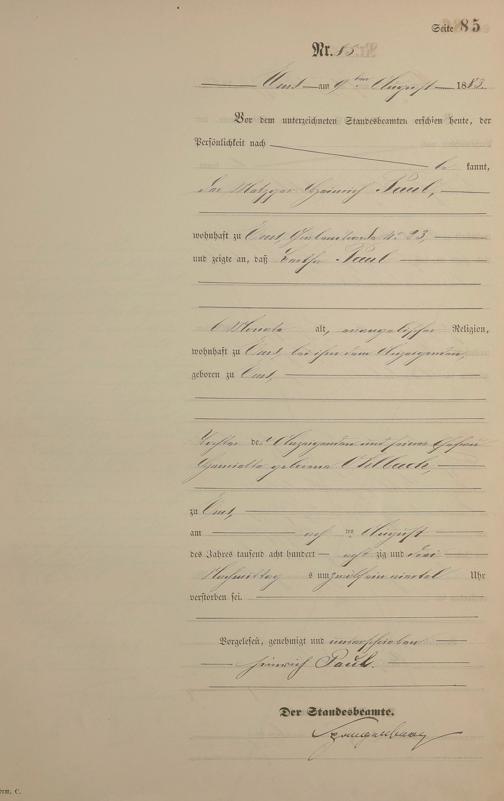 Seite 85
Nr. 85.
Ems am 9ten August 1883.
Vor dem unterzeichneten Standesbeamten erschien heute, der
Persönlichkeit nach
be kannt,
der Metzger Heinrich Paul,
wohnhaft zu Ems, No 23,
und zeigte an, daß Bertha Paul
6 Monate alt, evangelischer Religion,
wohnhaft zu Ems, bei ihm dem Anzeigenden,
geboren zu Ems,
Tochter des Anzeigenden und seiner Ehefrau
geborene
zu Ems,
am acht ten August
des Jahres tausend acht hundert achtzig und drei
Nachmittag s um zwölf ein viertel Uhr
verstorben sei.
Vorgelesen, genehmigt und unterschrieben
Heinrich Paul.
Der Standesbeamte.